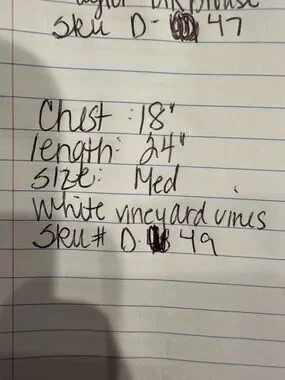 Sku D- 47
Chest : 18"
length: 24"
Size: Med
White vineyard vines
Sku# D. 49